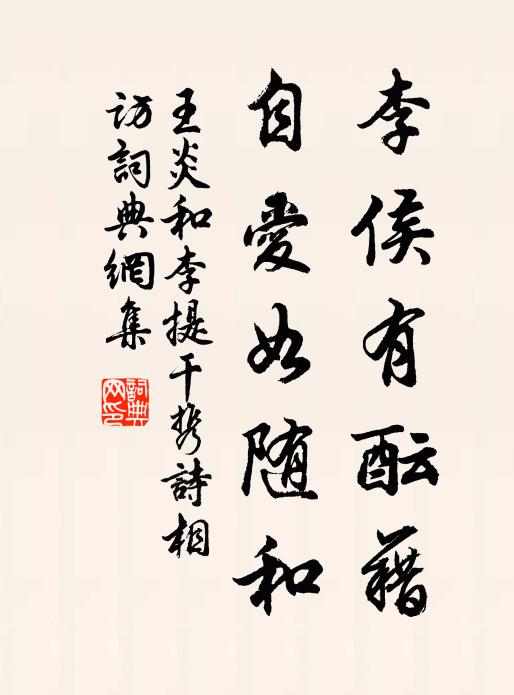 李侯有酝藉
自愛如随和
王炎和李提干携詩相
訪詞典網集
詞典
网印